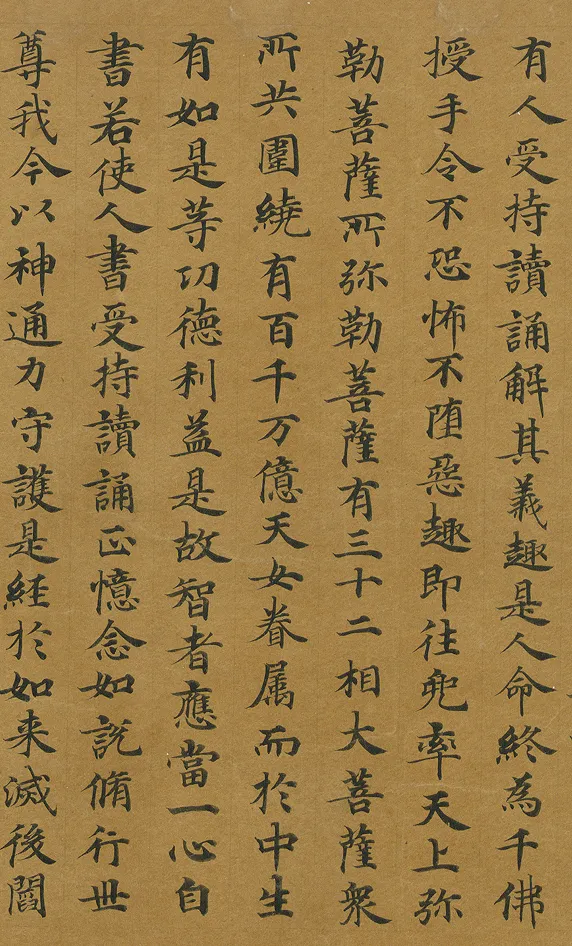 有人受持讀誦解其義趣是人命終為千佛
授手令不恐怖不堕惡趣即往兜率天上弥
勒菩薩所弥勒菩薩有三十二相大菩薩衆
所共圍繞有百千万億天女眷属而於中生
有如是等功德利益是故智者應當一心自
書若使人書受持讀誦正憶念如説脩行世
尊我今以神通力守護是経於如来滅後閻